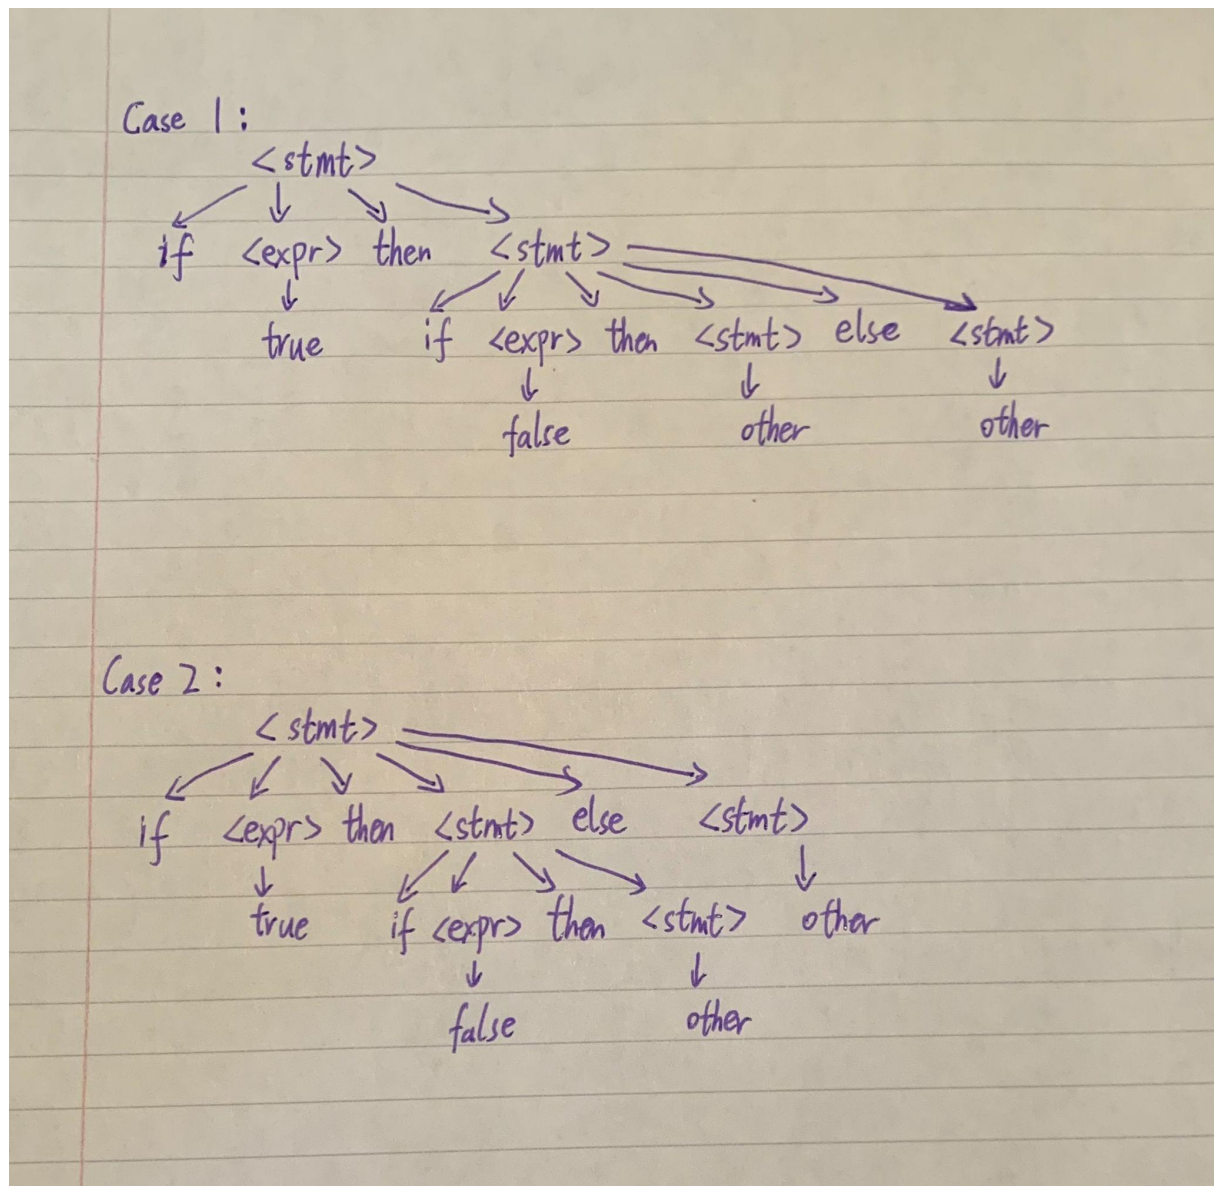 Case 1:
<stmt>
if <expr> then <stmt>
true if <expr> then <stmt> else <stmt>
false other other
Case 2:
<stmt>
if <expr> then <stmt> else <stmt>
true if <expr> then <stmt> other
false other